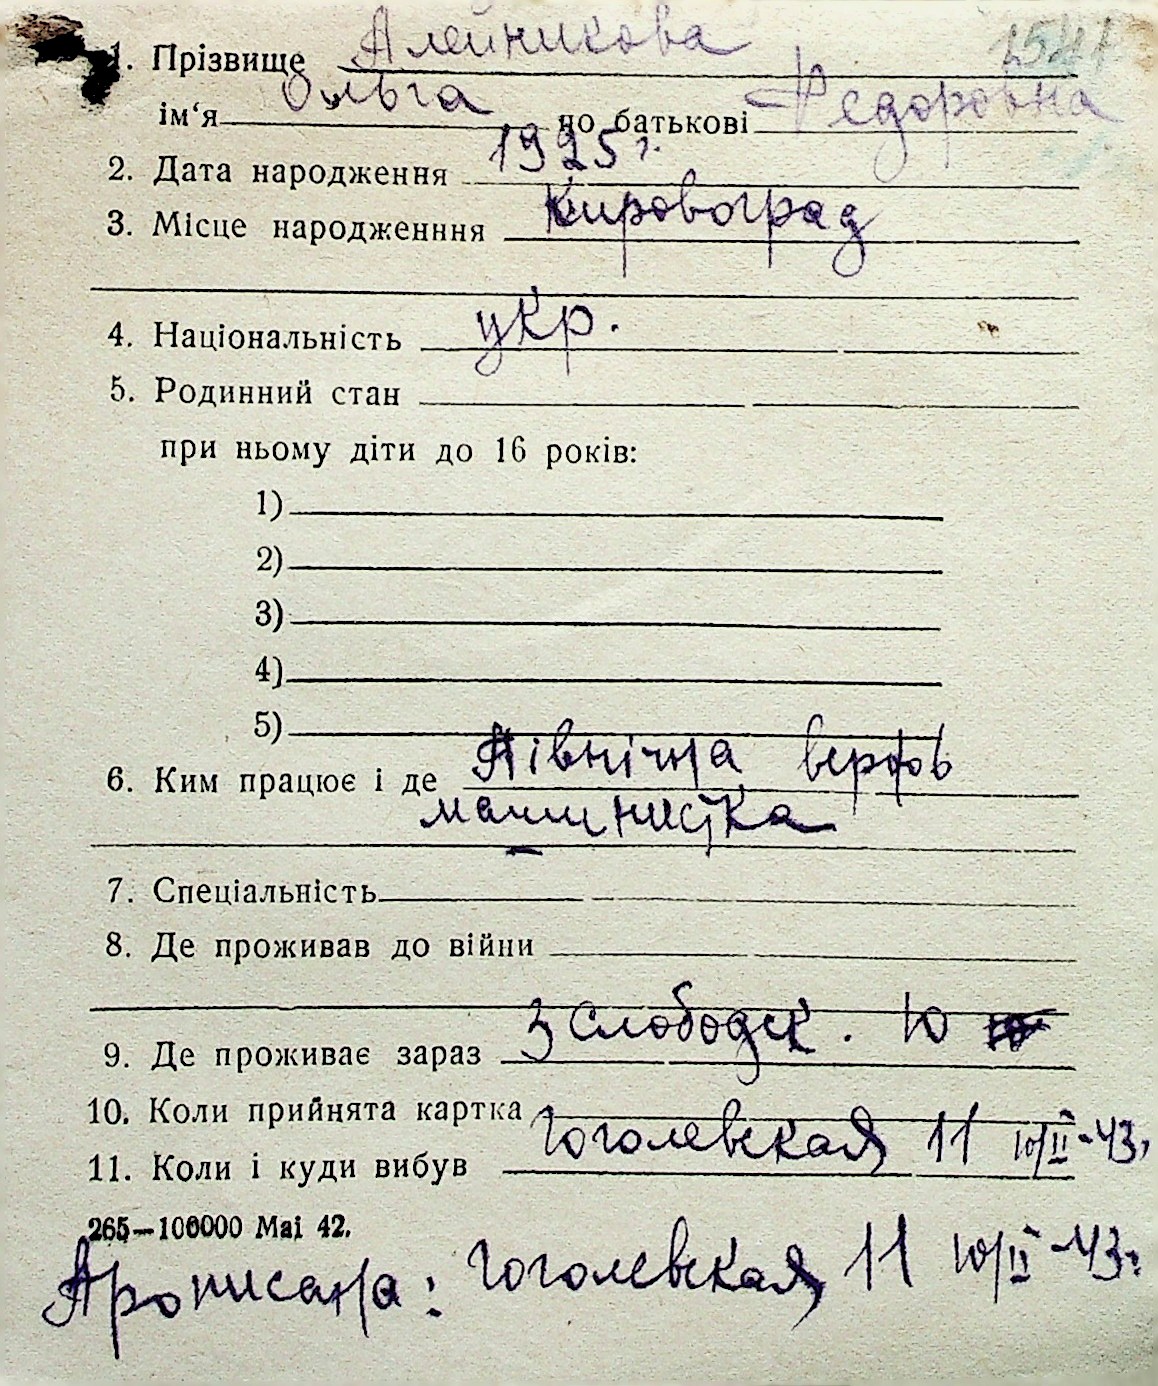 1. Прізвище Алейникова 2541
ім‘я Ольга по батькові Федоровна
2. Дата народження 1925 г.
3. Місце народженння Кировоград
4. Національність укр.
5. Родинний стан
при ньому діти до 16 років:
1)
2)
3)
4)
5)
6. Ким працює і де Північна верфь
машинистка
7. Спеціальність
8. Де проживав до війни
9. Де проживає зараз 3 Слободск. 10
10. Коли прийнята картка
11. Коли і куди вибув Гоголевская 11 10/II-43г
265—100000 Mai 42.
Прописана: Гоголевская 11 10/II-43г